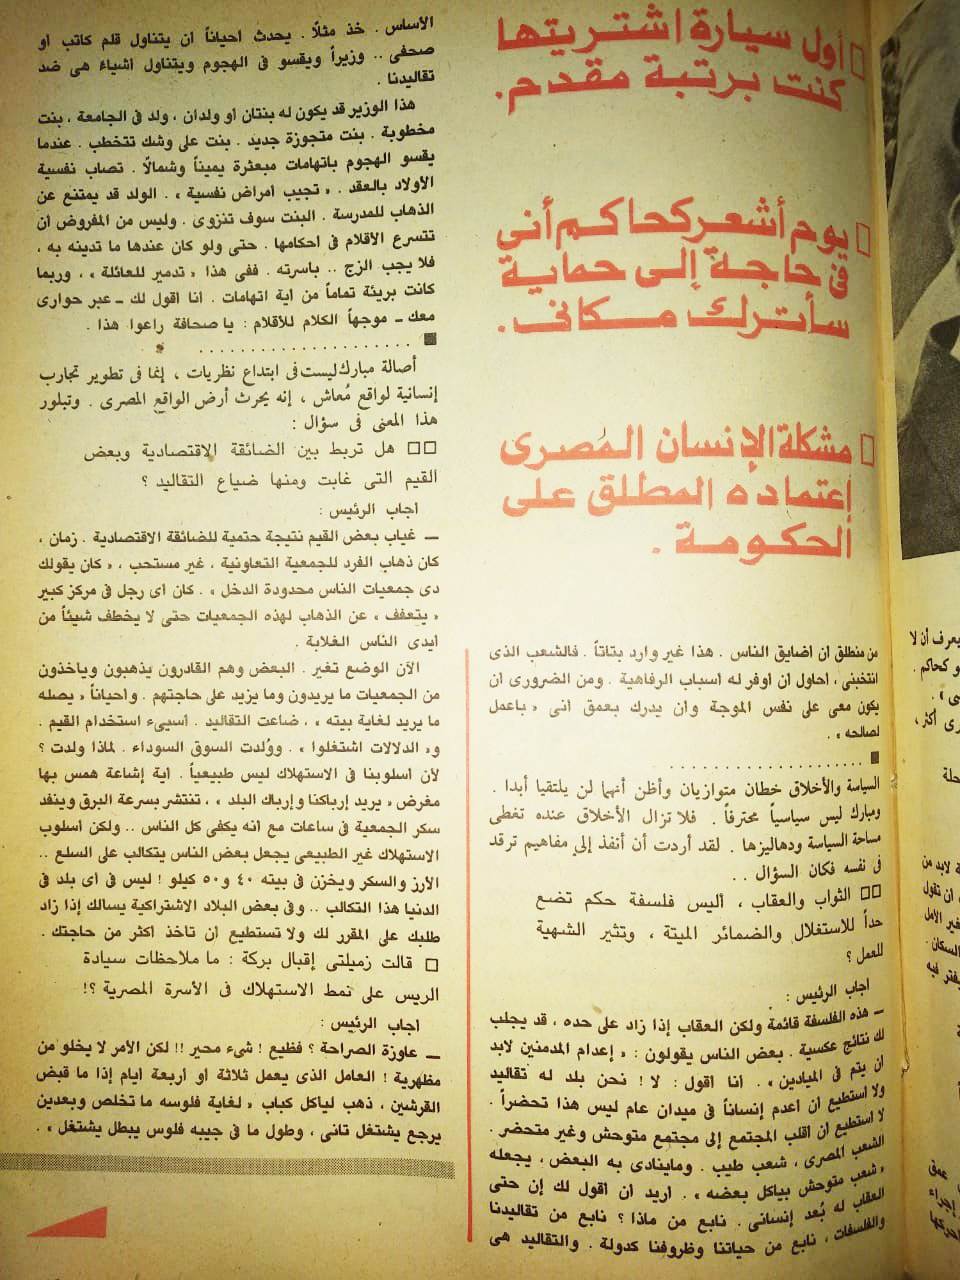 أول سيارة اشتريتها
كنت برتبة مقدم.
يوم أشعر كحاكم أني
في حاجة إلى حماية
سأترك مكاني.
مشكلة الإنسان المُصرى
إعتماده المطلق على
الحكومة.
من منطلق أن أضايق الناس . هذا غير وارد بتاتاً . فالشعب الذى
انتخبنى ، أحاول أن أوفر له أسباب الرفاهية . ومن الضرورى أن
يكون معى على نفس الموجة وأن يدرك بعمق أنى « باعمل
لصالحه » .
السياسة والأخلاق خطان متوازيان وأظن أنهما لن يلتقيا أبدا .
ومبارك ليس سياسياً محترفاً . فلا تزال الأخلاق عنده تغطى
مساحة السياسة ودهاليزها . لقد أردت أن أنفذ إلى مفاهيم ترقد
فى نفسه فكان السؤال . .
□□ الثواب والعقاب ، أليس فلسفة حكم تضع
حداً للاستغلال والضمائر الميتة ، وتثير الشهية
للعمل ؟
أجاب الرئيس :
ــ هذه الفلسفة قائمة ولكن العقاب إذا زاد على حده ، قد يجلب
لك نتائج عكسية . بعض الناس يقولون : « إعدام المدمنين لابد
أن يتم فى الميادين » . أنا أقول : لا ! نحن بلد له تقاليد
ولا أستطيع أن أعدم إنساناً فى ميدان عام ليس هذا تحضراً .
لا أستطيع أن أقلب المجتمع إلى مجتمع متوحش وغير متحضر .
الشعب المصرى ، شعب طيب . وماينادى به البعض ، يجعله
« شعب متوحش بياكل بعضه » . أريد أن أقول لك إن حتى
العقاب له بُعد إنسانى . نابع من ماذا ؟ نابع من تقاليدنا
والفلسفات ، نابع من حياتنا وظروفنا كدولة . والتقاليد هى
الأساس . خذ مثلاً . يحدث أحياناً أن يتناول قلم كاتب أو
صحفى .. وزيراً ويقسو فى الهجوم ويتناول أشياء هى ضد
تقاليدنا .
هذا الوزير قد يكون له بنتان أو ولدان ، ولد فى الجامعة ، بنت
مخطوبة . بنت متجوزة جديد . بنت على وشك تتخطب . عندما
يقسو الهجوم باتهامات مبعثرة يميناً وشمالاً . تصاب نفسية
الأولاد بالعقد . « تجيب أمراض نفسية » . الولد قد يمتنع عن
الذهاب للمدرسة . البنت سوف تنزوى . وليس من المفروض أن
تتسرع الأقلام فى أحكامها . حتى ولو كان عندها ما تدينه به ،
فلا يجب الزج .. بأسرته . ففى هذا « تدمير للعائلة » ، وربما
كانت بريئة تماماً من أية اتهامات . أنا أقول لك ــ عبر حوارى
معك ــ موجهاً الكلام للأقلام : يا صحافة راعوا هذا .
أصالة مبارك ليست فى ابتداع نظريات ، إنما فى تطوير تجارب
إنسانية لواقع مُعاش ، إنه يحرث أرض الواقع المصرى . وتبلور
هذا المعنى فى سؤال :
□□ هل تربط بين الضائقة الاقتصادية وبعض
القيم التى غابت ومنها ضياع التقاليد ؟
أجاب الرئيس :
ــ غياب بعض القيم نتيجة حتمية للضائقة الاقتصادية . زمان ،
كان ذهاب الفرد للجمعية التعاونية ، غير مستحب ، « كان يقولك
دى جمعيات الناس محدودة الدخل » . كان أى رجل فى مركز كبير
« يتعفف » عن الذهاب لهذه الجمعيات حتى لا يخطف شيئاً من
أيدى الناس الغلابة .
الآن الوضع تغير . البعض وهم القادرون يذهبون ويأخذون
من الجمعيات ما يريدون وما يزيد على حاجتهم . وأحياناً « يصله
ما يريد لغاية بيته » ، ضاعت التقاليد . أسيىء استخدام القيم .
و« الدلالات اشتغلوا » . ووُلدت السوق السوداء . لماذا ولدت ؟
لأن أسلوبنا فى الاستهلاك ليس طبيعياً . أية إشاعة همس بها
مغرض « يريد إرباكنا وإرباك البلد » ، تنتشر بسرعة البرق وينفد
سكر الجمعية فى ساعات مع أنه يكفى كل الناس .. ولكن أسلوب
الاستهلاك غير الطبيعى يجعل بعض الناس يتكالب على السلع ..
الأرز والسكر ويخزن فى بيته ٤٠ و٥٠ كيلو ! ليس فى أى بلد فى
الدنيا هذا التكالب .. وفى بعض البلاد الاشتراكية يسالك إذا زاد
طلبك على المقرر لك ولا تستطيع أن تاخذ أكثر من حاجتك .
□ قالت زميلتى إقبال بركة : ما ملاحظات سيادة
الريس على نمط الاستهلاك فى الأسرة المصرية ؟!
أجاب الرئيس :
ــ عاوزة الصراحة ؟ فظيع ! شىء محير !! لكن الأمر لا يخلو من
مظهرية ! العامل الذى يعمل ثلاثة أو أربعة أيام إذا ما قبض
القرشين ، ذهب لياكل كباب « لغاية فلوسه ما تخلص وبعدين
يرجع يشتغل تانى ، وطول ما فى جيبه فلوس يبطل يشتغل » .